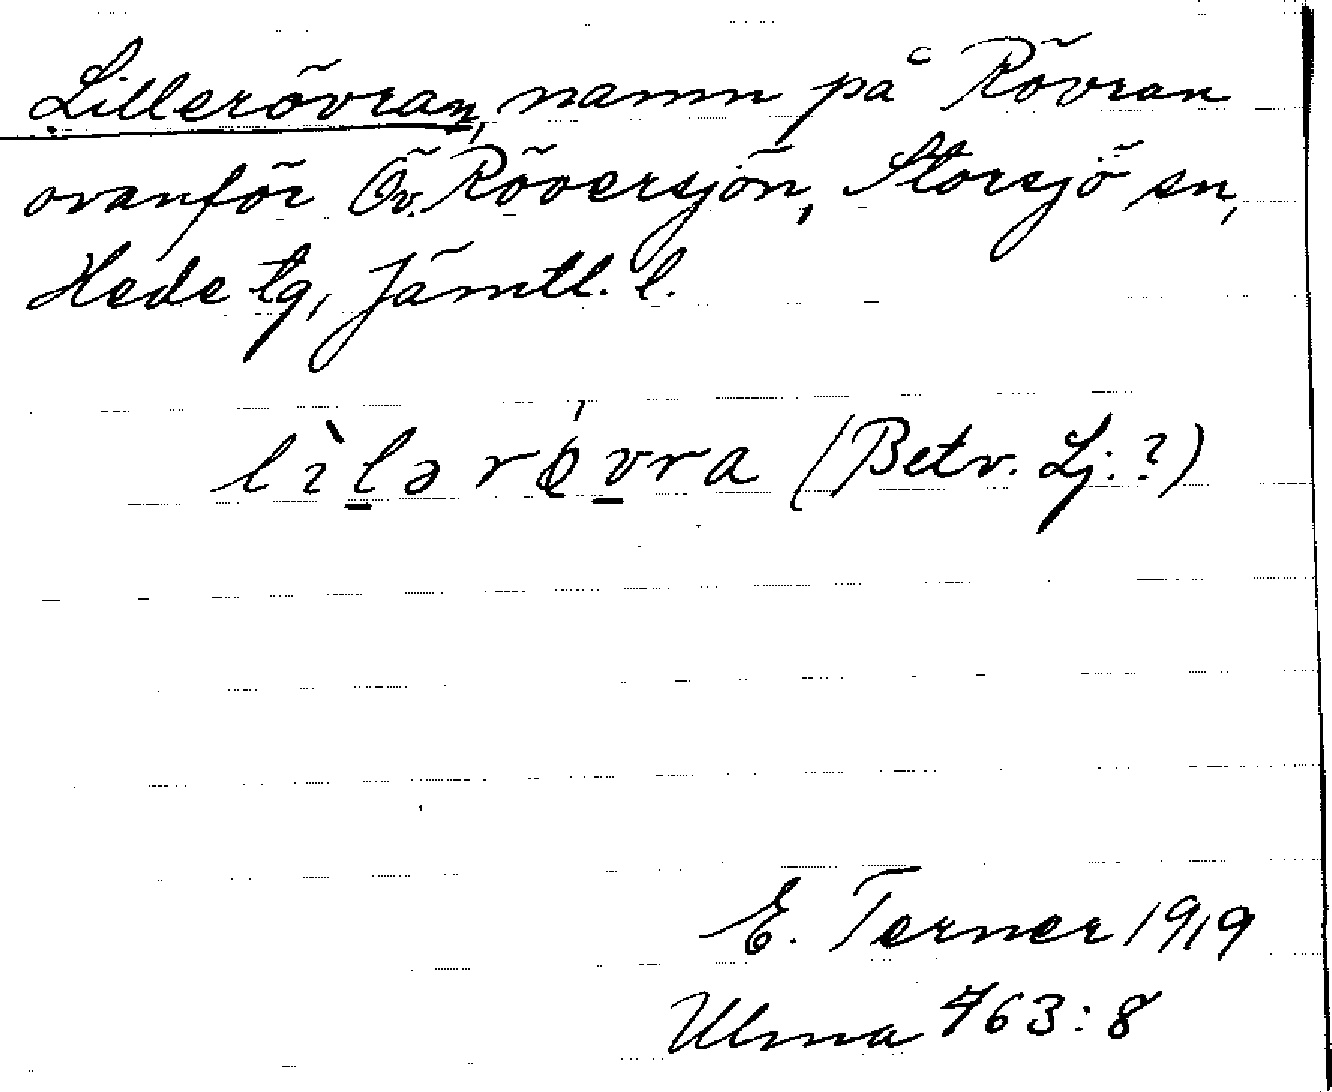 Lillerövran, namn på Rövran
ovanför Öv. Röversjön, Storsjö sn,
Hede tg, Jämtl. l.
lìlərø̍vra (Betv. Lj:?)
E. Terner 1919
Ulma 463:8